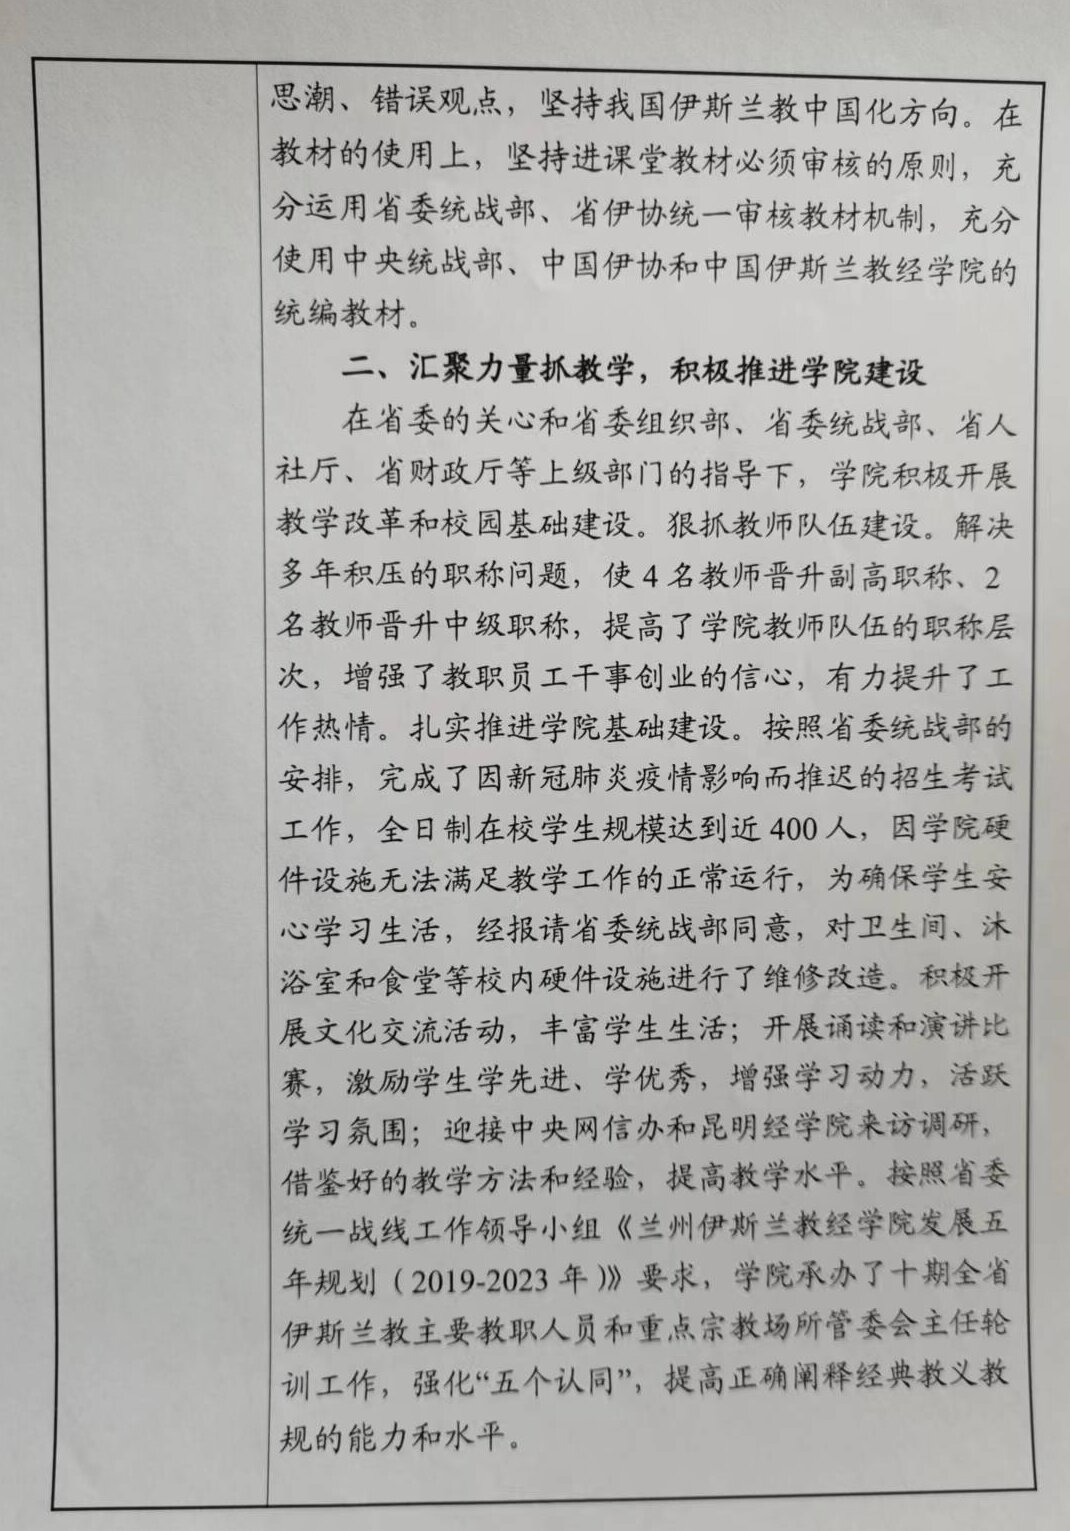 思潮、错误观点，坚持我国伊斯兰教中国化方向。在
教材的使用上，坚持进课堂教材必须审核的原则，充
分运用省委统战部、省伊协统一审核教材机制，充分
使用中央统战部、中国伊协和中国伊斯兰教经学院的
统编教材。
二、汇聚力量抓教学，积极推进学院建设
在省委的关心和省委组织部、省委统战部、省人
社厅、省财政厅等上级部门的指导下，学院积极开展
教学改革和校园基础建设。狠抓教师队伍建设。解决
多年积压的职称问题，使 4 名教师晋升副高职称、2
名教师晋升中级职称，提高了学院教师队伍的职称层
次，增强了教职员工干事创业的信心，有力提升了工
作热情。扎实推进学院基础建设。按照省委统战部的
安排，完成了因新冠肺炎疫情影响而推迟的招生考试
工作，全日制在校学生规模达到近 400 人，因学院硬
件设施无法满足教学工作的正常运行，为确保学生安
心学习生活，经报请省委统战部同意，对卫生间、沐
浴室和食堂等校内硬件设施进行了维修改造。积极开
展文化交流活动，丰富学生生活；开展诵读和演讲比
赛，激励学生学先进、学优秀，增强学习动力，活跃
学习氛围；迎接中央网信办和昆明经学院来访调研，
借鉴好的教学方法和经验，提高教学水平。按照省委
统一战线工作领导小组《兰州伊斯兰教经学院发展五
年规划（2019-2023 年）》要求，学院承办了十期全省
伊斯兰教主要教职人员和重点宗教场所管委会主任轮
训工作，强化“五个认同”，提高正确阐释经典教义教
规的能力和水平。